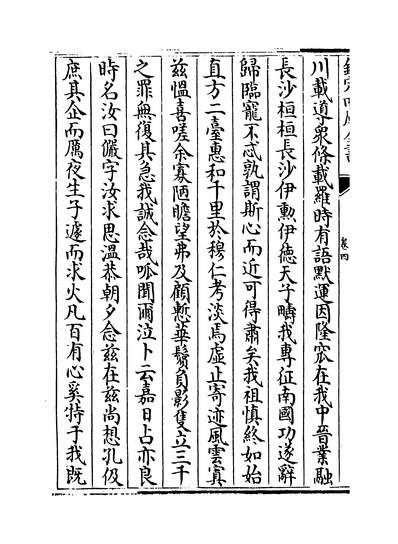 欽定四庫全書
卷四
川載導衆條載羅時有語默運因隆窊在我中晉業融
長沙桓桓長沙伊勳伊德天子疇我專征南國功遂辭
歸臨寵不忒孰謂斯心而近可得肅矣我祖慎終如始
直方二臺惠和千里於穆仁考淡焉虛止寄迹風雲寘
兹愠喜嗟余寡陋瞻望弗及顧慙華鬢負影隻立三千
之罪無復其急我誠念哉呱聞爾泣卜云嘉日占亦良
時名汝曰儼字汝求思溫恭朝夕念兹在兹尚想孔伋
庶其企而厲夜生子遽而求火凡百有心奚特于我既